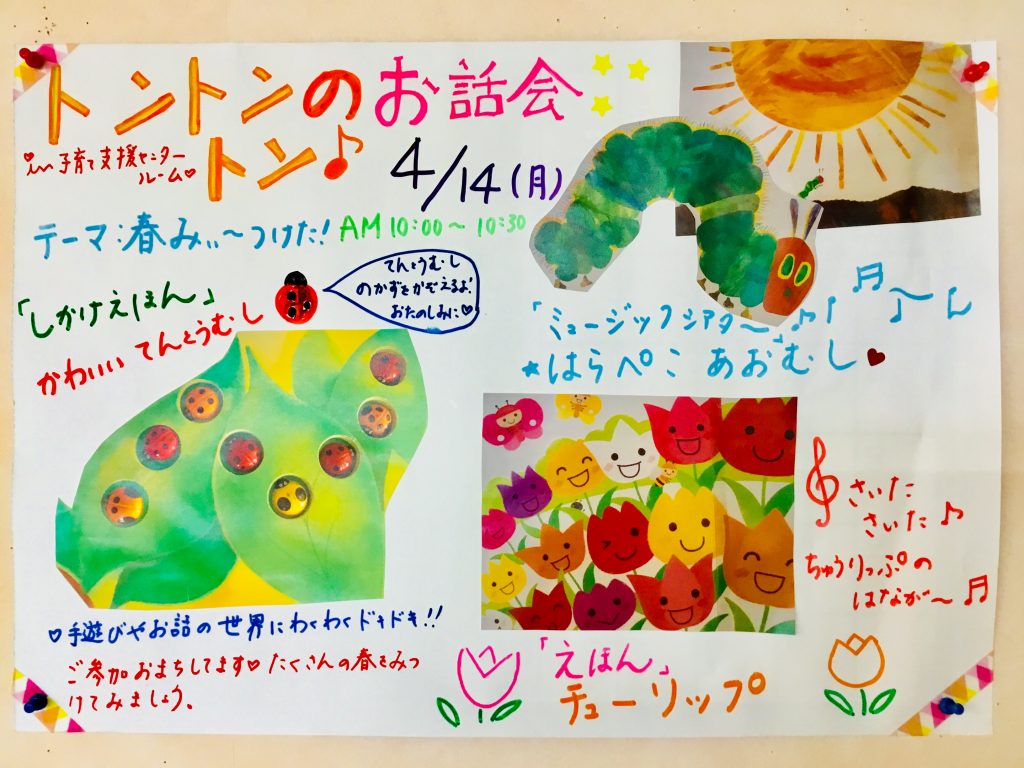 トントンのお話会
トン♪
in 子育て支援センター
ルーム♡
4/14(月)
テーマ:春みぃ〜つけた! AM 10:00〜10:30
「しかけえほん」
かわいい てんとうむし
てんとうむし
のかずをかぞえるよ!
おたのしみに♡
「ミュージックシアター」♪
★はらぺこ あおむし♥
さいた
さいた♪
ちゅうりっぷの
はなが〜♬
♡手遊びやお話の世界にわくわくドキドキ!!
ご参加おまちしてます♡たくさんの春をみつ
けてみましょう。
「えほん」
チューリップ